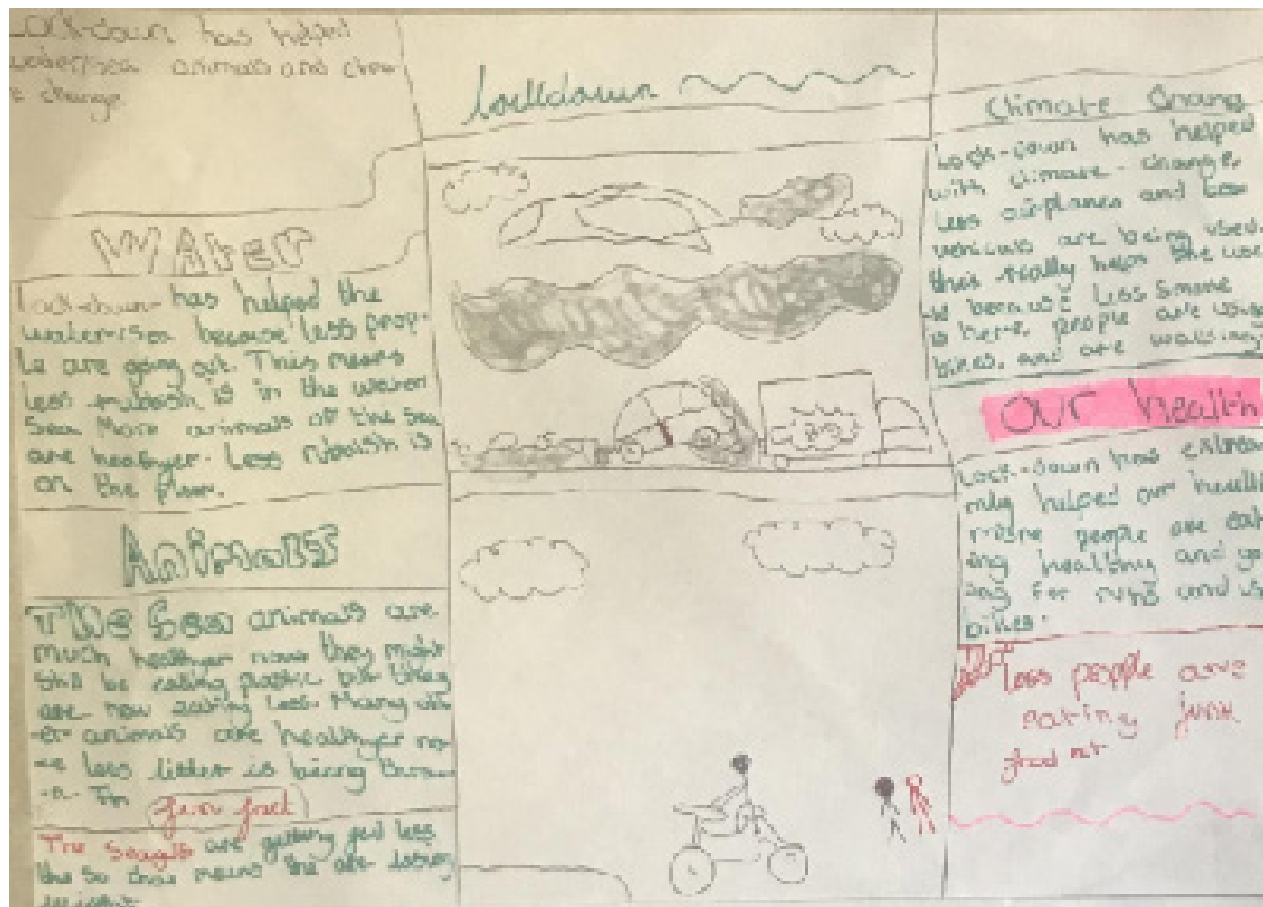 Lock-down has helped
water/sea animals and
change
Water
Lock-down has helped the
water/sea because less peop-
le are going out. This means
less rubbish is in the water
Sea. More animals of the sea
are healthyer. Less rubbish is
on the floor.
Animals
The Sea animals are
much healthyer now they might
still be eating plastic but they
are now eating less. Many
animals are healthyer
less litter is being
fun fact
The seaguls are getting fed less
this means the are losing
weight
lockdown
Climate Chang
Lock-down has helped
with climate-change.
Less airplanes and less
vehicals are being used.
this really helps the
because less smoke
is here. people are using
bikes, and are walking
Our health
Lock-down has
helped our health
more people are eat-
ing healthy and go-
ing for runs and
bikes.
less people are
eating junk
food